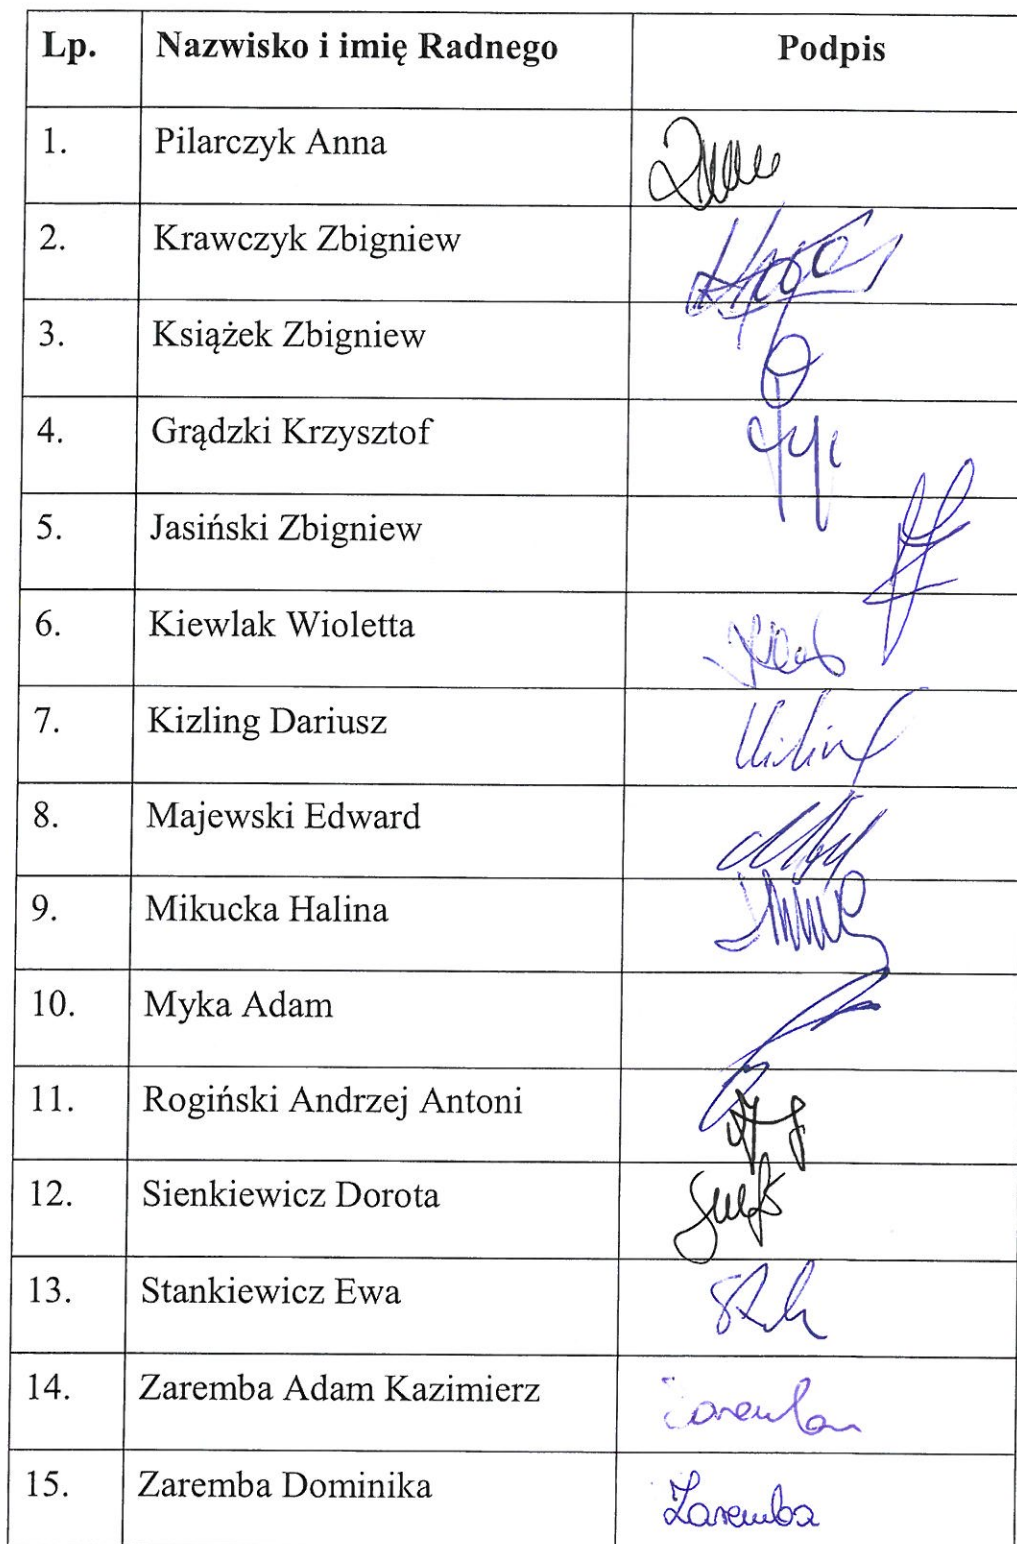 Lp. Nazwisko i imię Radnego Podpis
1. Pilarczyk Anna
2. Krawczyk Zbigniew
3. Książek Zbigniew
4. Grądzki Krzysztof
5. Jasiński Zbigniew
6. Kiewlak Wioletta
7. Kizling Dariusz
8. Majewski Edward
9. Mikucka Halina
10. Myka Adam
11. Rogiński Andrzej Antoni
12. Sienkiewicz Dorota
13. Stankiewicz Ewa
14. Zaremba Adam Kazimierz Zaremba
15. Zaremba Dominika Zaremba